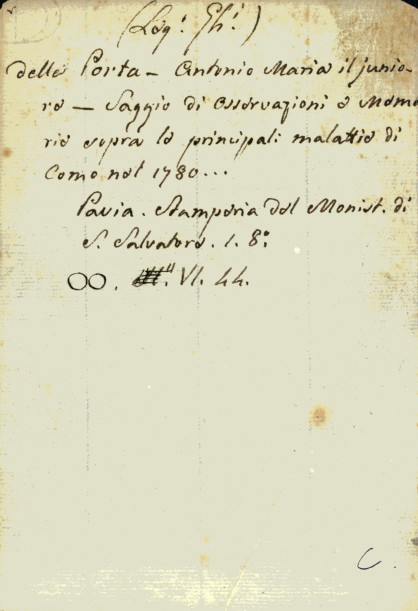 (Leg. Gh.)
della Porta - Antonio Maria il junio-
re - Saggio di Osservazioni e Memo
rie sopra le principali malattie di
Como nel 1780...
Pavia. Stamperia del Monist. di
S. Salvatore. 1. 8.
OO. VI. 44.
C.